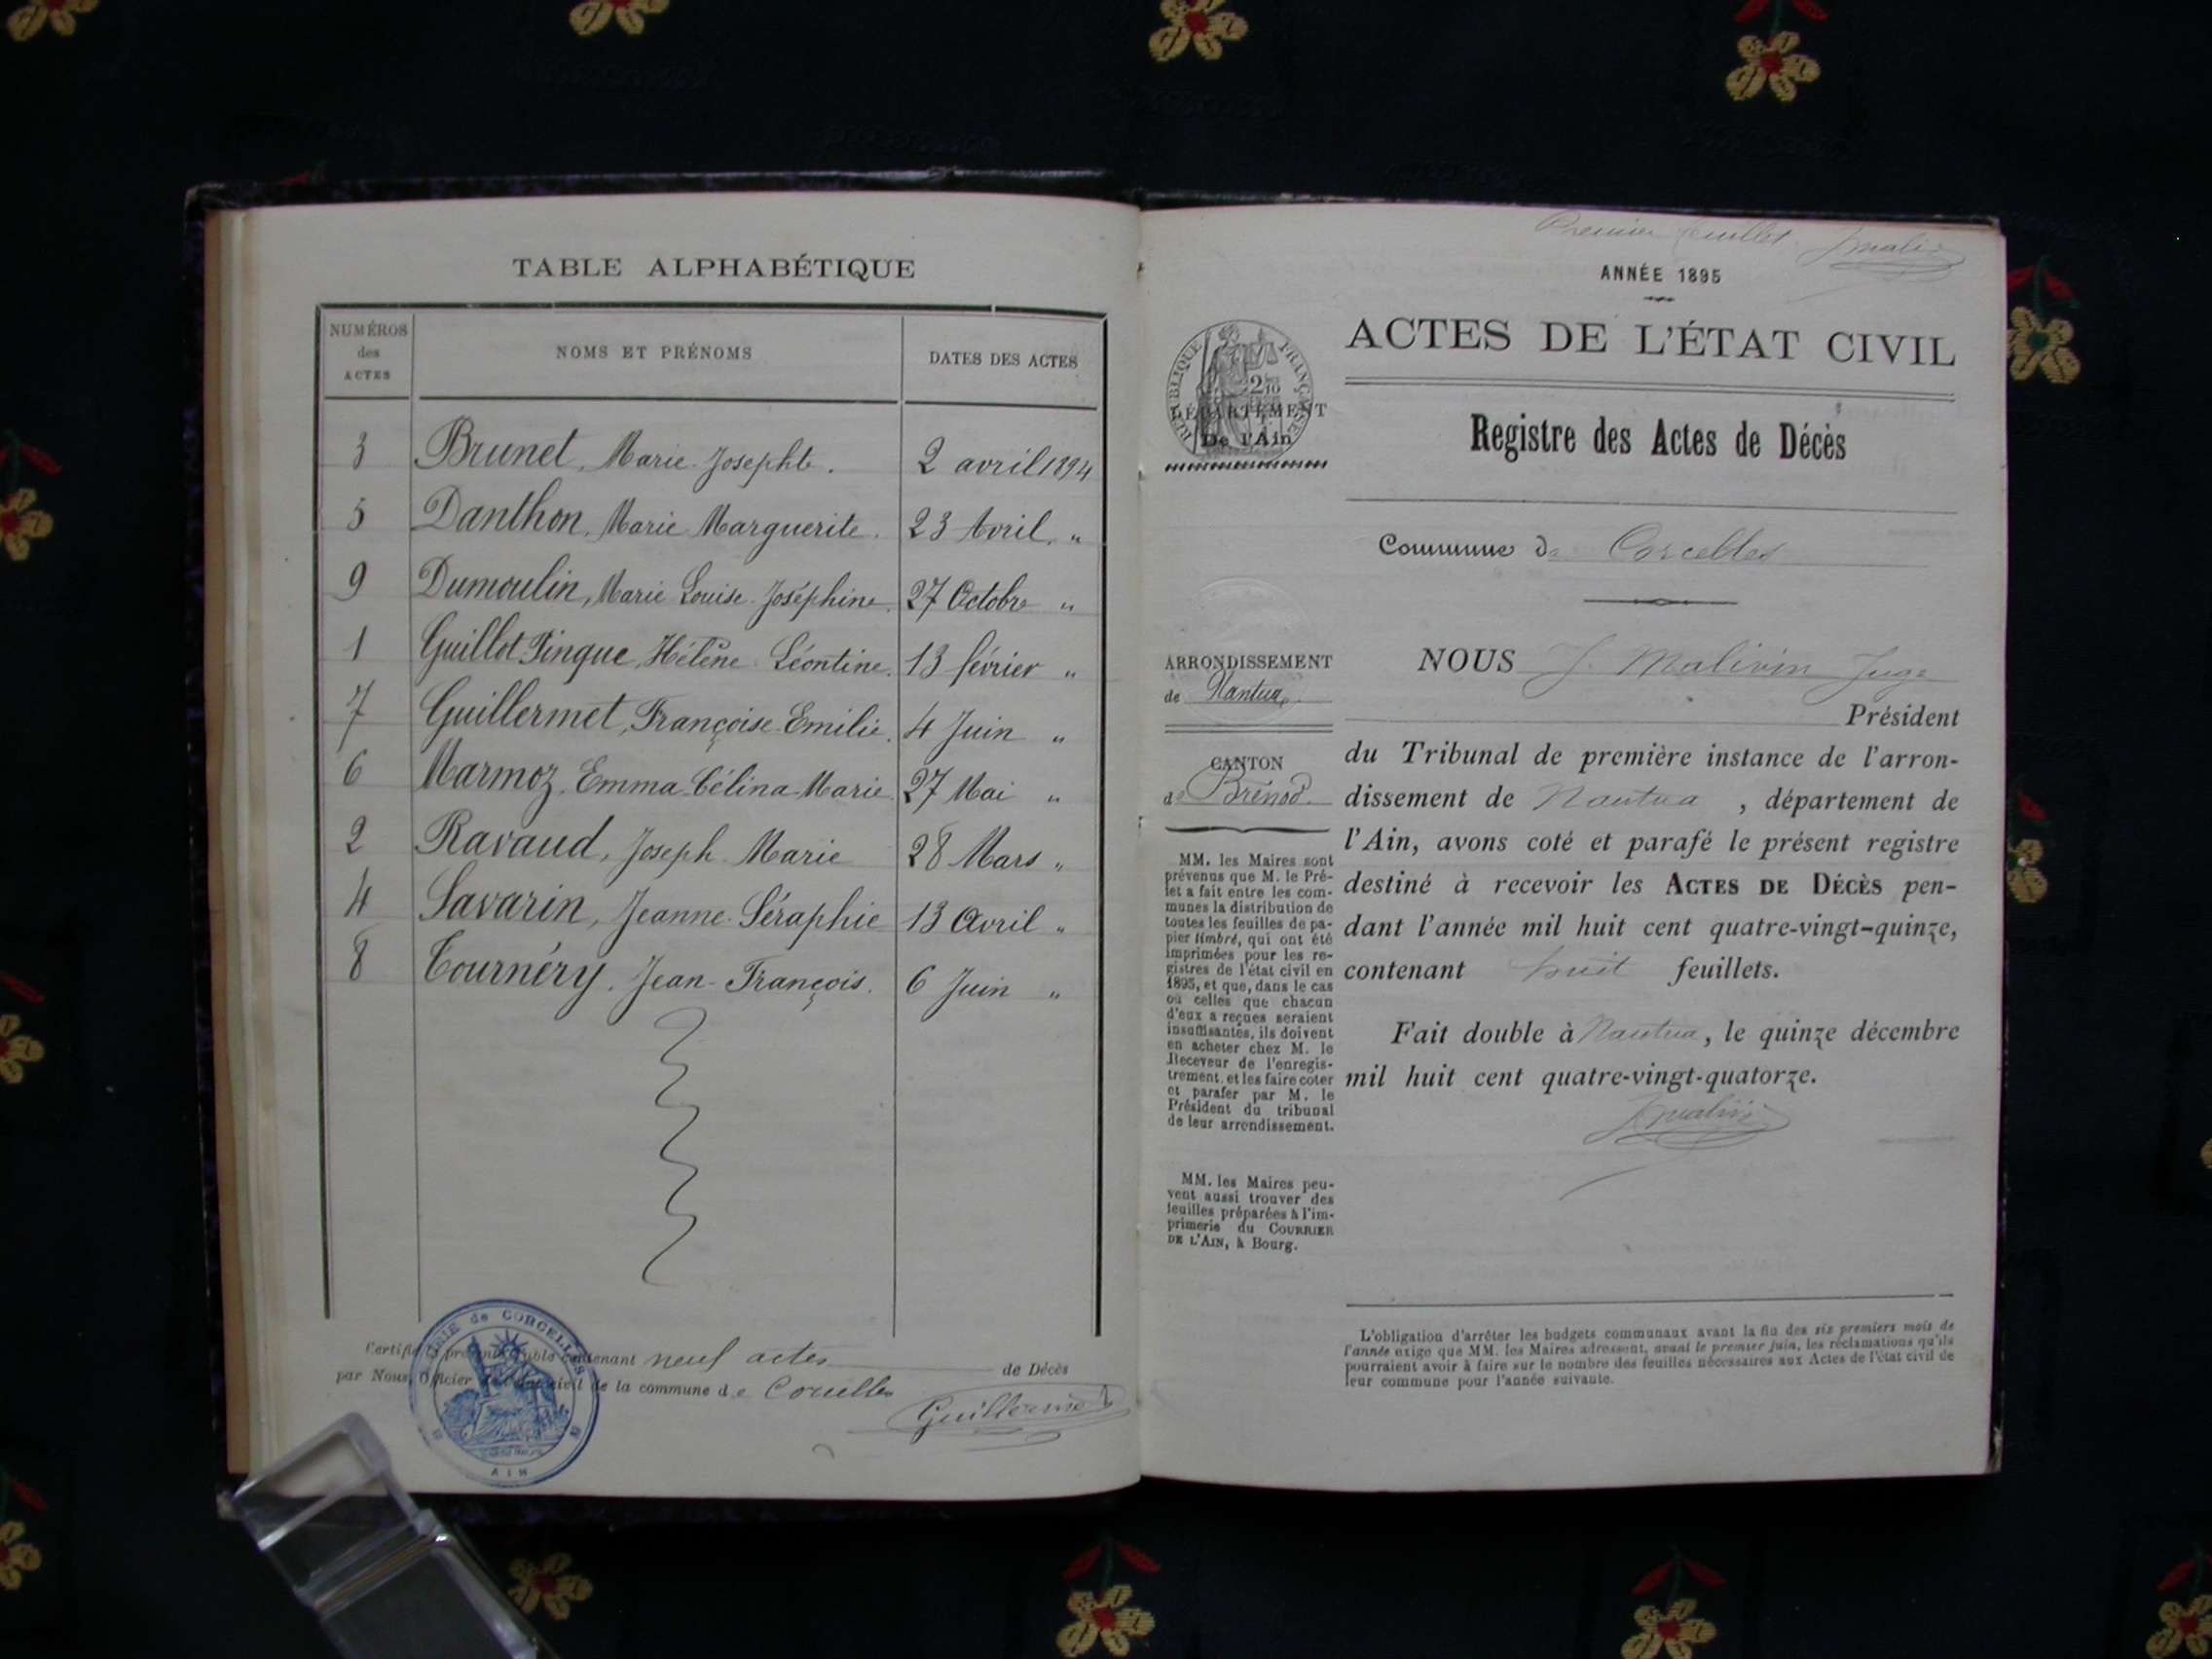 TABLE ALPHABÉTIQUE
NUMÉROS des ACTES
NOMS ET PRÉNOMS
DATES DES ACTES
3 Brunet, Marie Josephte. 2 avril 1894
5 Danthon, Marie Marguerite. 23 Avril "
9 Dumoulin, Marie Louise Joséphine. 27 Octobre "
1 Guillot Pingue, Hélène Léontine. 13 février "
7 Guillermet, Françoise Emilie. 4 Juin "
6 Marmoz, Emma Célina Marie 27 Mai "
2 Ravaud, Joseph Marie 28 Mars "
4 Savarin, Jeanne Séraphie 13 Avril "
8 Tournéry, Jean-François. 6 Juin "
Certifié présente table contenant neuf actes de Décès
par Nous, Officier de l'état civil de la commune de Corcelles
Guillermet
MAIRIE de CORCELLES
AIN
Premier feuillet.
ANNÉE 1895
ACTES DE L'ÉTAT CIVIL
RÉPUBLIQUE FRANÇAISE
DÉPARTEMENT
De l'Ain
Registre des Actes de Décès
Commune de Corcelles
ARRONDISSEMENT
de Nantua
CANTON
de Brénod.
MM. les Maires sont
prévenus que M. le Pré-
fet a fait entre les com-
munes la distribution de
toutes les feuilles de pa-
pier timbré, qui ont été
imprimées pour les re-
gistres de l'état civil en
1895, et que, dans le cas
où celles que chacun
d'eux a reçues seraient
insuffisantes, ils doivent
en acheter chez M. le
Receveur de l'enregis-
trement et les faire coter
et parafer par M. le
Président du tribunal
de leur arrondissement.
MM. les Maires peu-
vent aussi trouver des
feuilles préparées à l'im-
primerie du COURRIER
DE L'AIN, à Bourg.
NOUS J. Malivin Juge
Président
du Tribunal de première instance de l'arron-
dissement de Nantua , département de
l'Ain, avons coté et parafé le présent registre
destiné à recevoir les ACTES DE DÉCÈS pen-
dant l'année mil huit cent quatre-vingt-quinze,
contenant huit feuillets.
Fait double à Nantua, le quinze décembre
mil huit cent quatre-vingt-quatorze.
L'obligation d'arrêter les budgets communaux avant la fin des six premiers mois de
l'année exige que MM. les Maires adressent, avant le premier juin, les réclamations qu'ils
pourraient avoir à faire sur le nombre des feuilles nécessaires aux Actes de l'état civil de
leur commune pour l'année suivante.